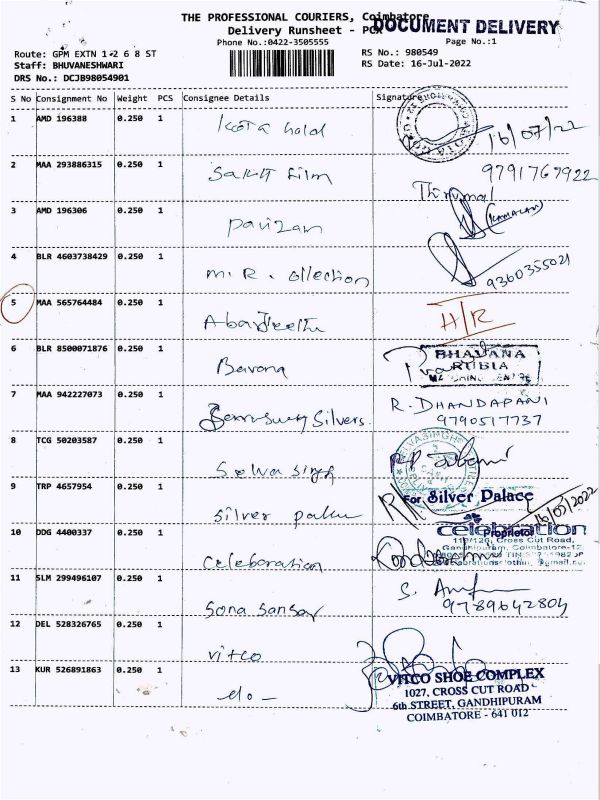 THE PROFESSIONAL COURIERS, Coimbatore
DOCUMENT DELIVERY
Delivery Runsheet -
Phone No.:0422-3505555
Page No.:1
Route: GPM EXTN 1 2 6 8 ST
RS No.: 980549
Staff: BHUVANESHWARI
RS Date: 16-Jul-2022
DRS No.: DCJB98054901
S No Consignment No Weight PCS Consignee Details Signature
1 AMD 196388 0.250 1 Kota hold 16/07/22
2 MAA 293886315 0.250 1 Sakti film 9791767922
Thirumal
3 AMD 196306 0.250 1 (KAMALAM)
4 BLR 4603738429 0.250 1 M.R. ollection 9360355021
5 MAA 565764484 0.250 1 H/R
6 BLR 8500071876 0.250 1 Bavana BHAVANA
RUBIA
7 MAA 942227073 0.250 1 Silvers R. DHANDAPANI
9790517737
8 TCG 50203587 0.250 1 Selva singh
9 TRP 4657954 0.250 1 Silver For Silver Palace
Proprietor 16/07/2022
10 DDG 4400337 0.250 1 Celeboration celebration
119/126, Cross Cut Road,
Gandhipuram, Coimbatore-12
11 SLM 299496107 0.250 1 Sona S.
9789642804
12 DEL 528326765 0.250 1 vitco
13 KUR 526891863 0.250 1 do - VITCO SHOE COMPLEX
1027, CROSS CUT ROAD
6th STREET, GANDHIPURAM
COIMBATORE - 641 012